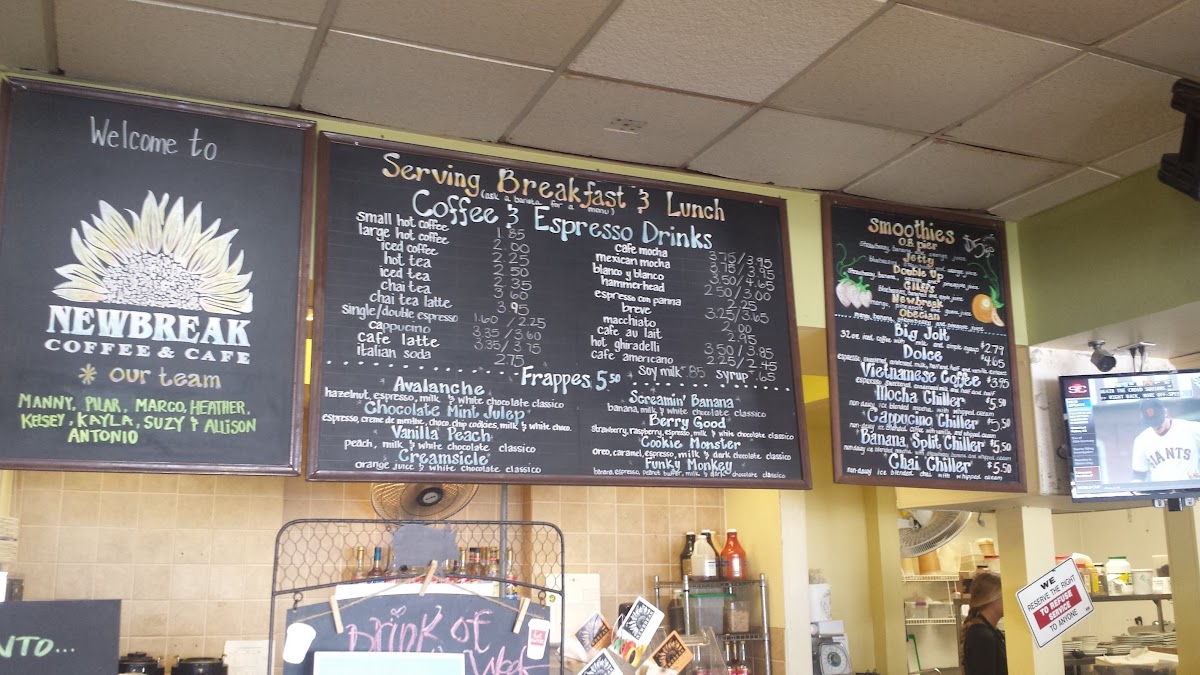 Welcome to
NEWBREAK
COFFEE & CAFE
our team
MANNY, PILAR, MARCO, HEATHER,
KELSEY, KAYLA, SUZY & ALLISON
ANTONIO
Serving Breakfast & Lunch
(ask a barista for a menu)
Coffee & Espresso Drinks
small hot coffee 1.85
large hot coffee 2.00
iced coffee 2.25
hot tea
iced tea
chai tea
chai tea latte 3.95
single/double espresso 1.60 / 2.25
cappucino 3.35/3.60
cafe latte 3.35/3.95
italian soda 2.75
cafe mocha 3.75/3.95
mexican mocha 3.75/3.95
blanco y blanco 3.50/4.65
hammerhead 2.50/3.00
espresso con panna 2.25
breve 3.25/3.65
macchiato 2.00
cafe au lait 2.95
hot ghiradelli 3.50/3.85
cafe americano 2.25/2.45
Soy milk .85 syrup .65
Frappes 5.50
Avalanche
hazelnut, espresso, milk & white chocolate classico
Chocolate Mint Julep
espresso, creme de menthe, choco chip cookies, milk & white choco.
Vanilla Peach
peach, milk & white chocolate classico
Creamsicle
orange juice & white chocolate classico
Screamin' Banana
banana, milk & white chocolate classico
Berry Good
strawberry, raspberry, espresso, milk & white chocolate classico
Cookie Monster
Oreo, caramel, espresso, milk & dark chocolate classico
Funky Monkey
banana, espresso, peanut butter, milk & dark chocolate classico
Smoothies $5.50
O.B. pier
strawberry, banana and orange juice
Jetty
Double Up
strawberry, banana, and pineapple juice
Newbreak
Obecian
mango, banana, strawberry and pineapple juice
Big Jolt
32oz. iced coffee with milk and simple syrup $2.79
Dolce $4.65
Vietnamese Coffee $3.95
espresso, sweetened condensed milk and half and half
Mocha Chiller $5.50
non-dairy ice blended mocha with whipped cream
Cappucino Chiller $5.50
non-dairy ice blended coffee with vanilla and whipped cream
Banana Split Chiller $5.50
Chai Chiller $5.50
non-dairy ice blended chai with whipped cream
GIANTS
WE
RESERVE THE RIGHT
TO REFUSE
SERVICE
TO ANYONE
NTO...
Drink of
Week